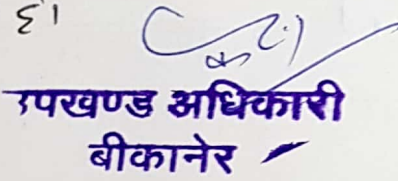 है।
उपखण्ड अधिकारी
बीकानेर